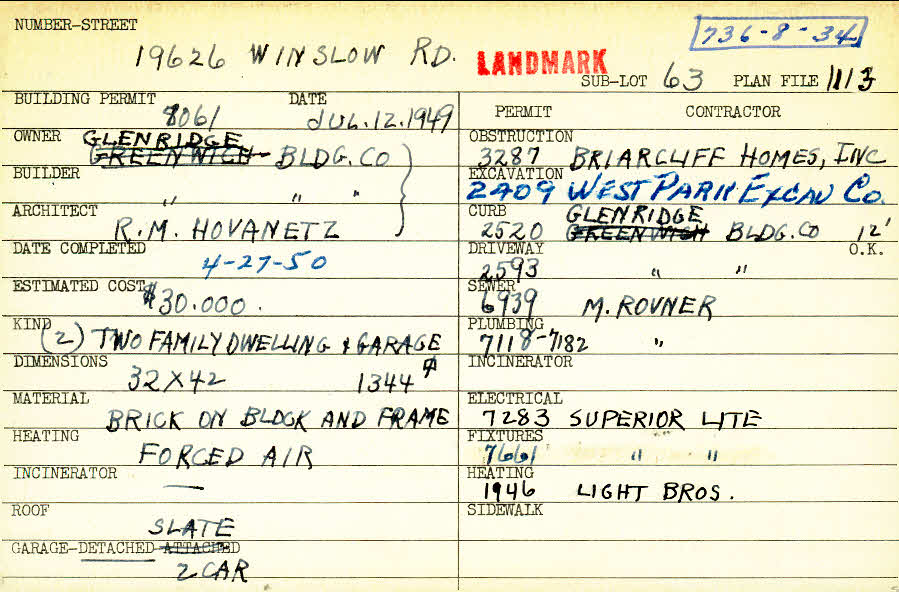 NUMBER-STREET
736-8-34
19626 WINSLOW RD.
LANDMARK
SUB-LOT 63 PLAN FILE 1113
BUILDING PERMIT 8061 DATE JUL.12.1949
OWNER GLENRIDGE
GREENWICH BLDG.CO
BUILDER " " "
ARCHITECT R.M. HOVANETZ
DATE COMPLETED 4-27-50
ESTIMATED COST $30.000.
KIND (2) TWO FAMILY DWELLING & GARAGE
DIMENSIONS 32X42 1344
MATERIAL BRICK ON BLOCK AND FRAME
HEATING FORCED AIR
INCINERATOR —
ROOF SLATE
GARAGE-DETACHED ATTACHED
2 CAR
PERMIT CONTRACTOR
OBSTRUCTION
3287 BRIARCLIFF HOMES, INC
EXCAVATION
2409 WEST PARK EXCAV CO.
CURB GLENRIDGE
2520 GREENWICH BLDG.CO 12'
DRIVEWAY O.K.
2593 " "
SEWER
6939 M. ROVNER
PLUMBING
7118-7182 "
INCINERATOR
ELECTRICAL
7283 SUPERIOR LITE
FIXTURES
7661 " "
HEATING
1946 LIGHT BROS.
SIDEWALK